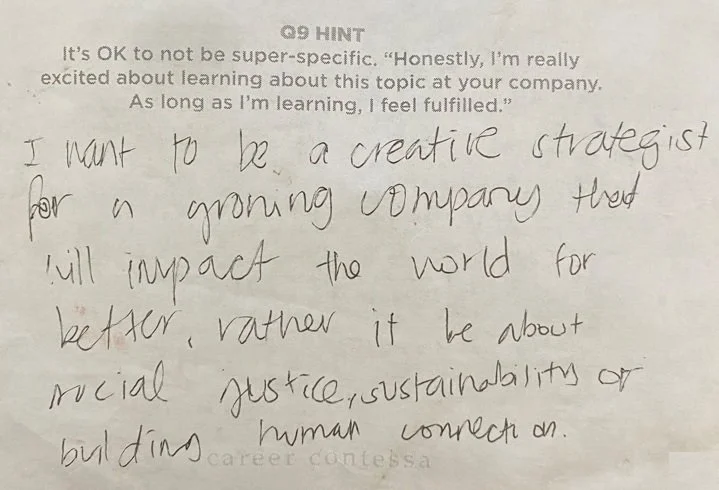 Q9 HINT
It's OK to not be super-specific. "Honestly, I'm really
excited about learning about this topic at your company.
As long as I'm learning, I feel fulfilled."
I want to be a creative strategist
for a growing company that
will impact the world for
better, rather it be about
social justice, sustainability or
building human connection.
career contessa